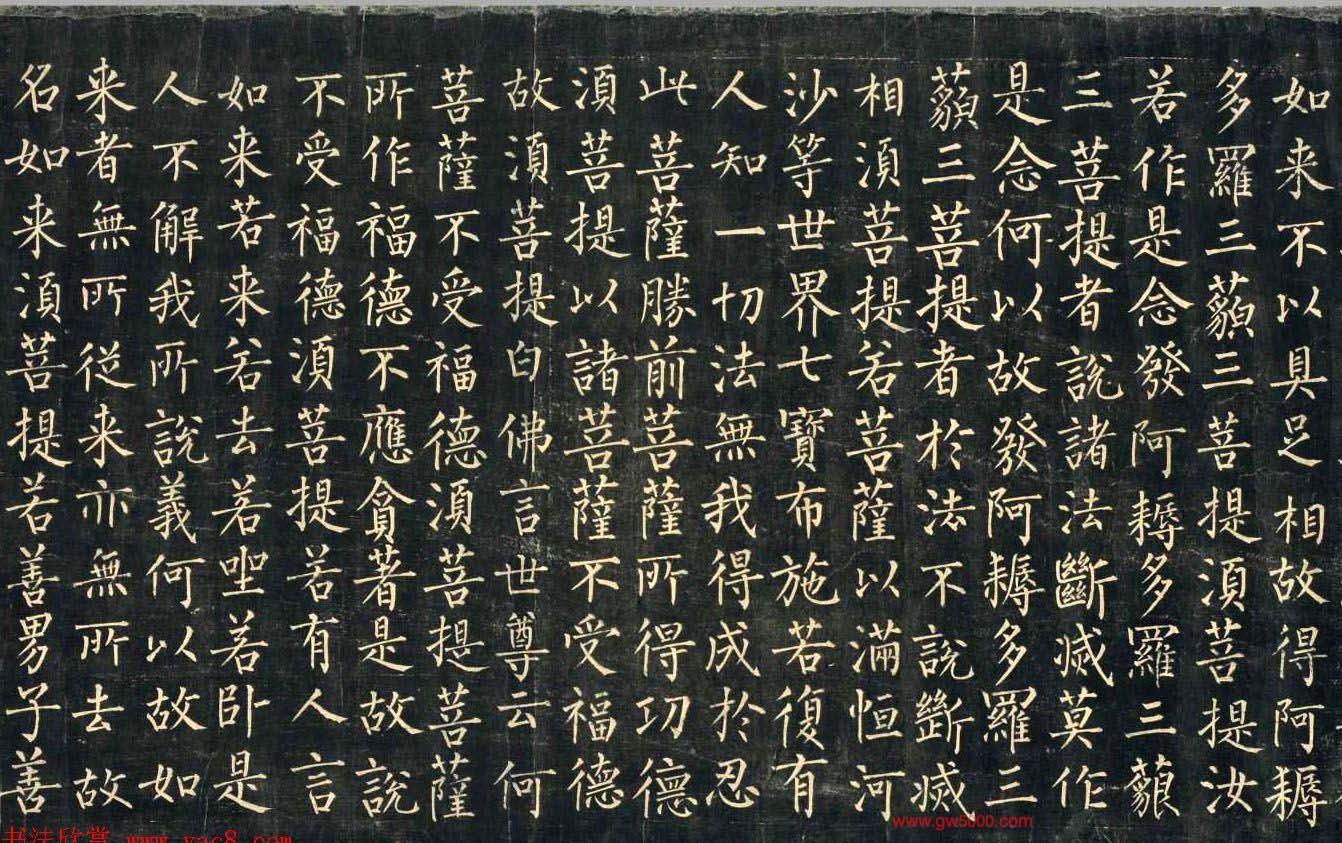 如来不以具足相故得阿耨
多羅三藐三菩提須菩提汝
若作是念發阿耨多羅三藐
三菩提者說諸法斷滅莫作
是念何以故發阿耨多羅三
藐三菩提者於法不說斷滅
相須菩提若菩薩以滿恒河
沙等世界七寶布施若復有
人知一切法無我得成於忍
此菩薩勝前菩薩所得功德
須菩提以諸菩薩不受福德
故須菩提白佛言世尊云何
菩薩不受福德須菩提菩薩
所作福德不應貪著是故說
不受福德須菩提若有人言
如来若来若去若坐若卧是
人不解我所說義何以故如
来者無所從来亦無所去故
名如来須菩提若善男子善
书法欣赏 www.yac8.com
www.gw5000.com